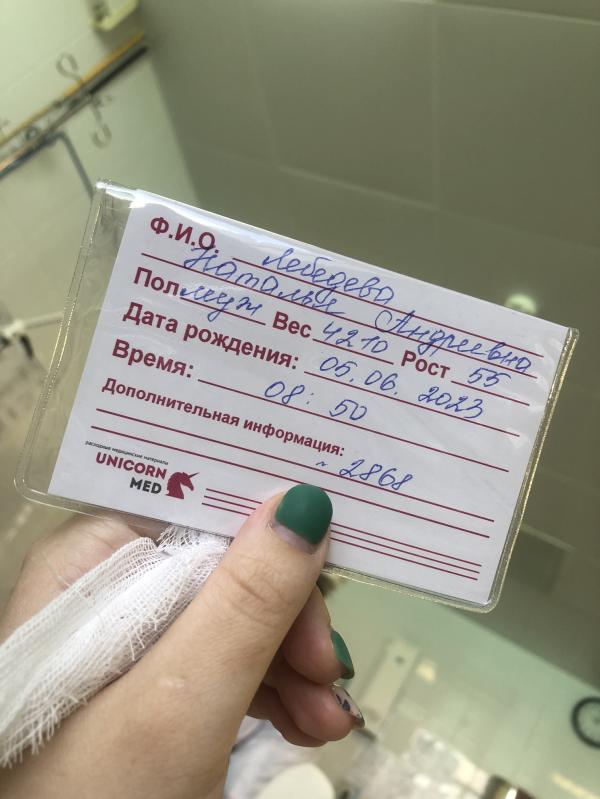 Ф.И.О. Лебедева
Наталья Андреевна
Пол муж Вес 4210 Рост 55
Дата рождения: 05.06.2023
Время: 08:50
Дополнительная информация:
~ 2868
расходные медицинские материалы
UNICORN
MED